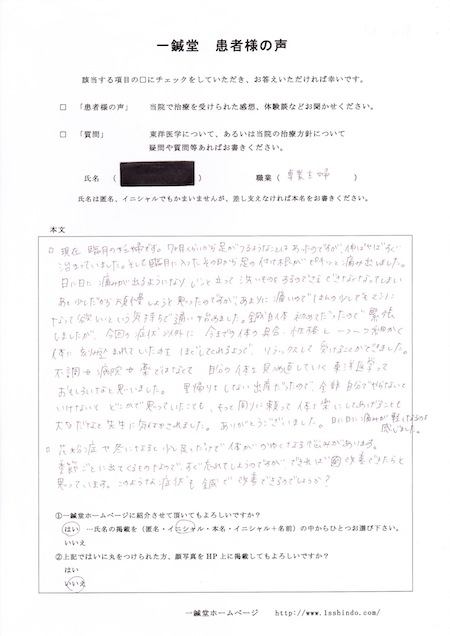 一鍼堂 患者様の声
該当する項目の□にチェックをしていただき、お答えいただければ幸いです。
□ 「患者様の声」 当院で治療を受けられた感想、体験談などお聞かせください。
□ 「質問」 東洋医学について、あるいは当院の治療方針について
疑問や質問等あればお書きください。
氏名 ( ) 職業 (専業主婦)
氏名は匿名、イニシャルでもかまいませんが、差し支えなければ本名をお書きください。
本文
□ 現在 臨月の妊婦です。7ヶ月くらいから足がつるようなことはあったのですが、伸ばせばすぐ
治まっていました。そして臨月に入ったその日から足の付け根がピキッと痛み出しました。
日に日に痛みが出るようになり じっと立って洗いものをするのもできなくなってしまい
あと少しだからお願い しようと思ったのですが、あまりに痛いので ほんの少しでもマシに
なって欲しいという気持ちで通い始めました。鍼自体初めてだったので緊張
しましたが、今回の症状以外に 今までの体の具合・性格と一つ一つ細かく
体に 刻み込まれていたものを ほどしてくれるようで、リラックスして受けることができました。
不調→病院→薬ではなくて 自分の体を見つめ直していく東洋医学って
おもしろいなと思いました。里帰りをしない出産だったので、全部自分でやらないと
いけないと どこかで思っていたことも、もって周りに頼って体を楽にしてあげることも
大事だなと先生に気付かされました。ありがとうございました。日に日に痛みが軽くなるのを
感じました。
□ 花粉症や冬になると少し足だけで体がかゆくなる悩みがあります。
季節ごとに出てくるものなので、すぐ忘れてしまうのですが できれば 改善できたらと
思っています。このような症状も鍼で改善できるのでしょうか?
①一鍼堂ホームページに紹介させて頂いてもよろしいですか?
はい …氏名の掲載を(匿名・イニシャル・本名・イニシャル+名前)の中からひとつお選び下さい。
いいえ
②上記ではいに丸をつけられた方、顔写真をHP上に掲載してもよろしいですか?
はい
いいえ
一鍼堂ホームページ http://www.1ssbindo.com/